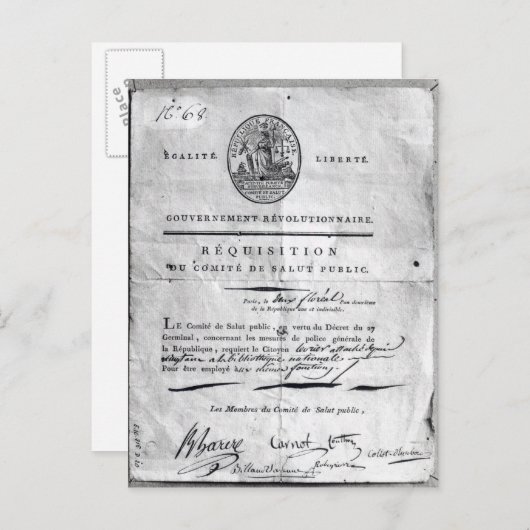 Place
N.º 68.
RÉPUBLIQUE FRANÇAISE.
COMITÉ DE SALUT
PUBLIC.
ÉGALITÉ. LIBERTÉ.
GOUVERNEMENT RÉVOLUTIONNAIRE.
RÉQUISITION
DU COMITÉ DE SALUT PUBLIC.
Paris, le deux floréal l'an deuxième
de la République une et indivisible.
LE Comité de Salut public, en vertu du Décret du 27
Germinal, concernant les mesures de police générale de
la République, requiert le Citoyen attaché depuis
vingt ans a la bibliotheque nationale
Pour être employé aux mêmes fonctions
Les Membres du Comité de Salut public,
B Barere Carnot Couthon Collot-d'herbois
Billaud Varenne Robespierre